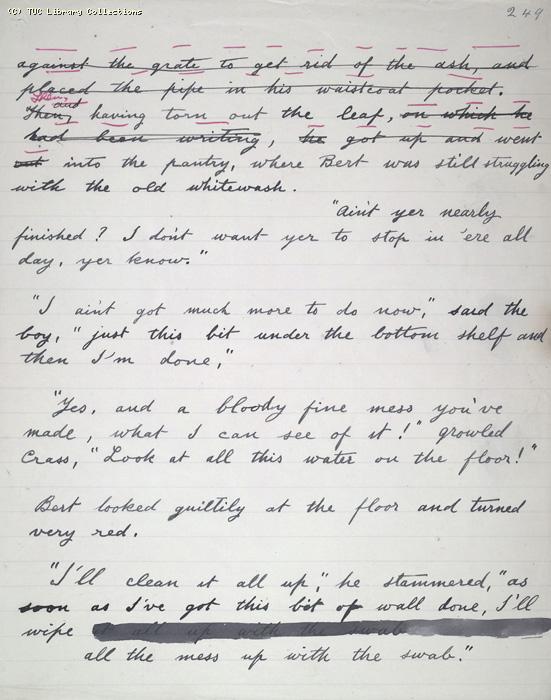 (C) TUC Library Collections
249
against the grate to get rid of the ash, and
placed the pipe in his waistcoat pocket.
Then, and
Then, having torn out the leaf, on which he
had been writing, he got up and went
out into the pantry, where Bert was still struggling
with the old whitewash.
"Ain't yer nearly
finished? I don't want yer to stop in 'ere all
day, yer know."
"I ain't got much more to do now," said the
boy, "just this bit under the bottom shelf and
then I'm done,"
"Yes, and a bloody fine mess you've
made, what I can see of it!" growled
Crass, "Look at all this water on the floor!"
Bert looked guiltily at the floor and turned
very red.
"I'll clean it all up", he stammered, "as
soon as I've got this bit of wall done, I'll
wipe it all up with the swab
all the mess up with the swab."